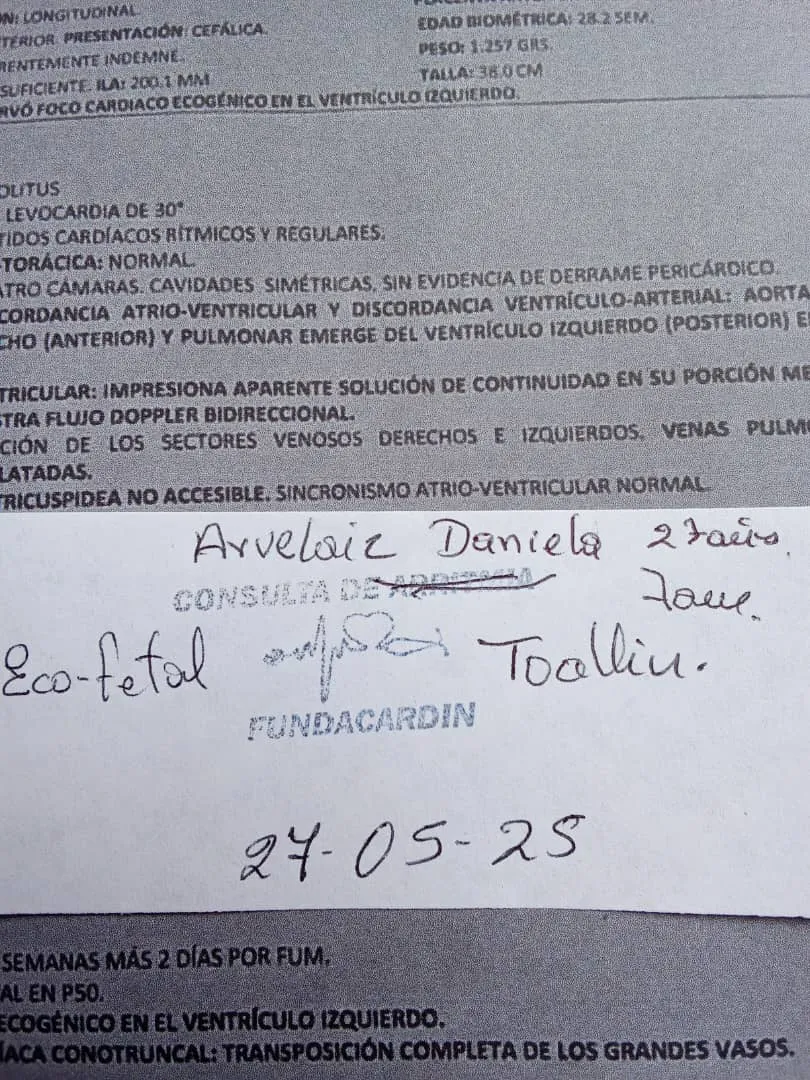 N: LONGITUDINAL
TERIOR. PRESENTACIÓN: CEFÁLICA.
EDAD BIOMÉTRICA: 28.2 SEM.
RENTEMENTE INDEMNE.
PESO: 1.257 GRS.
SUFICIENTE. ILA: 200.1 MM
TALLA: 38.0 CM
RVÓ FOCO CARDIACO ECOGÉNICO EN EL VENTRÍCULO IZQUIERDO.
OLITUS
LEVOCARDIA DE 30°
TIDOS CARDÍACOS RÍTMICOS Y REGULARES.
TORÁCICA: NORMAL
ATRO CÁMARAS. CAVIDADES SIMÉTRICAS, SIN EVIDENCIA DE DERRAME PERICÁRDICO.
CORDANCIA ATRIO-VENTRICULAR Y DISCORDANCIA VENTRÍCULO-ARTERIAL: AORTA
CHO (ANTERIOR) Y PULMONAR EMERGE DEL VENTRÍCULO IZQUIERDO (POSTERIOR) E
TRICULAR: IMPRESIONA APARENTE SOLUCIÓN DE CONTINUIDAD EN SU PORCIÓN ME
STRA FLUJO DOPPLER BIDIRECCIONAL.
CIÓN DE LOS SECTORES VENOSOS DERECHOS E IZQUIERDOS. VENAS PULM
LATADAS.
TRICUSPIDEA NO ACCESIBLE. SINCRONISMO ATRIO-VENTRICULAR NORMAL
Arvelaiz Daniela 27 años.
CONSULTA DE ARRITMIA
7am.
Eco-fetal
FUNDACARDIN
27-05-25
SEMANAS MÁS 2 DÍAS POR FUM.
AL EN P50.
ECOGÉNICO EN EL VENTRÍCULO IZQUIERDO.
ÍACA CONOTRUNCAL: TRANSPOSICIÓN COMPLETA DE LOS GRANDES VASOS.